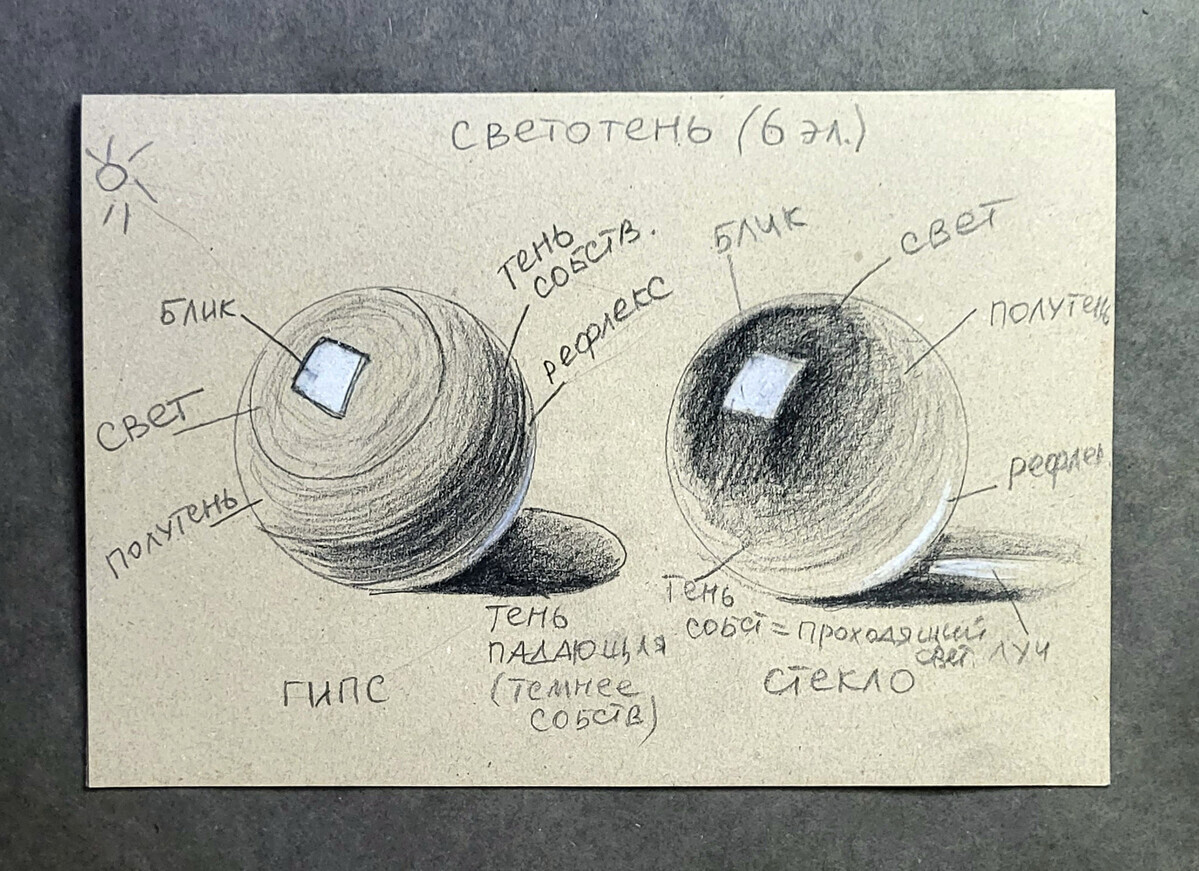 СВЕТОТЕНЬ (6 ЭЛ.)
БЛИК
СВЕТ
ПОЛУТЕНЬ
ТЕНЬ
СОБСТВ.
РЕФЛЕКС
ТЕНЬ
ПАДАЮЩАЯ
(ТЕМНЕЕ
СОБСТВ)
ГИПС
БЛИК
СВЕТ
ПОЛУТЕНЬ
РЕФЛЕК
ТЕНЬ
СОБСТ = ПРОХОДЯЩИЙ
СВЕТ. ЛУЧ
СТЕКЛО